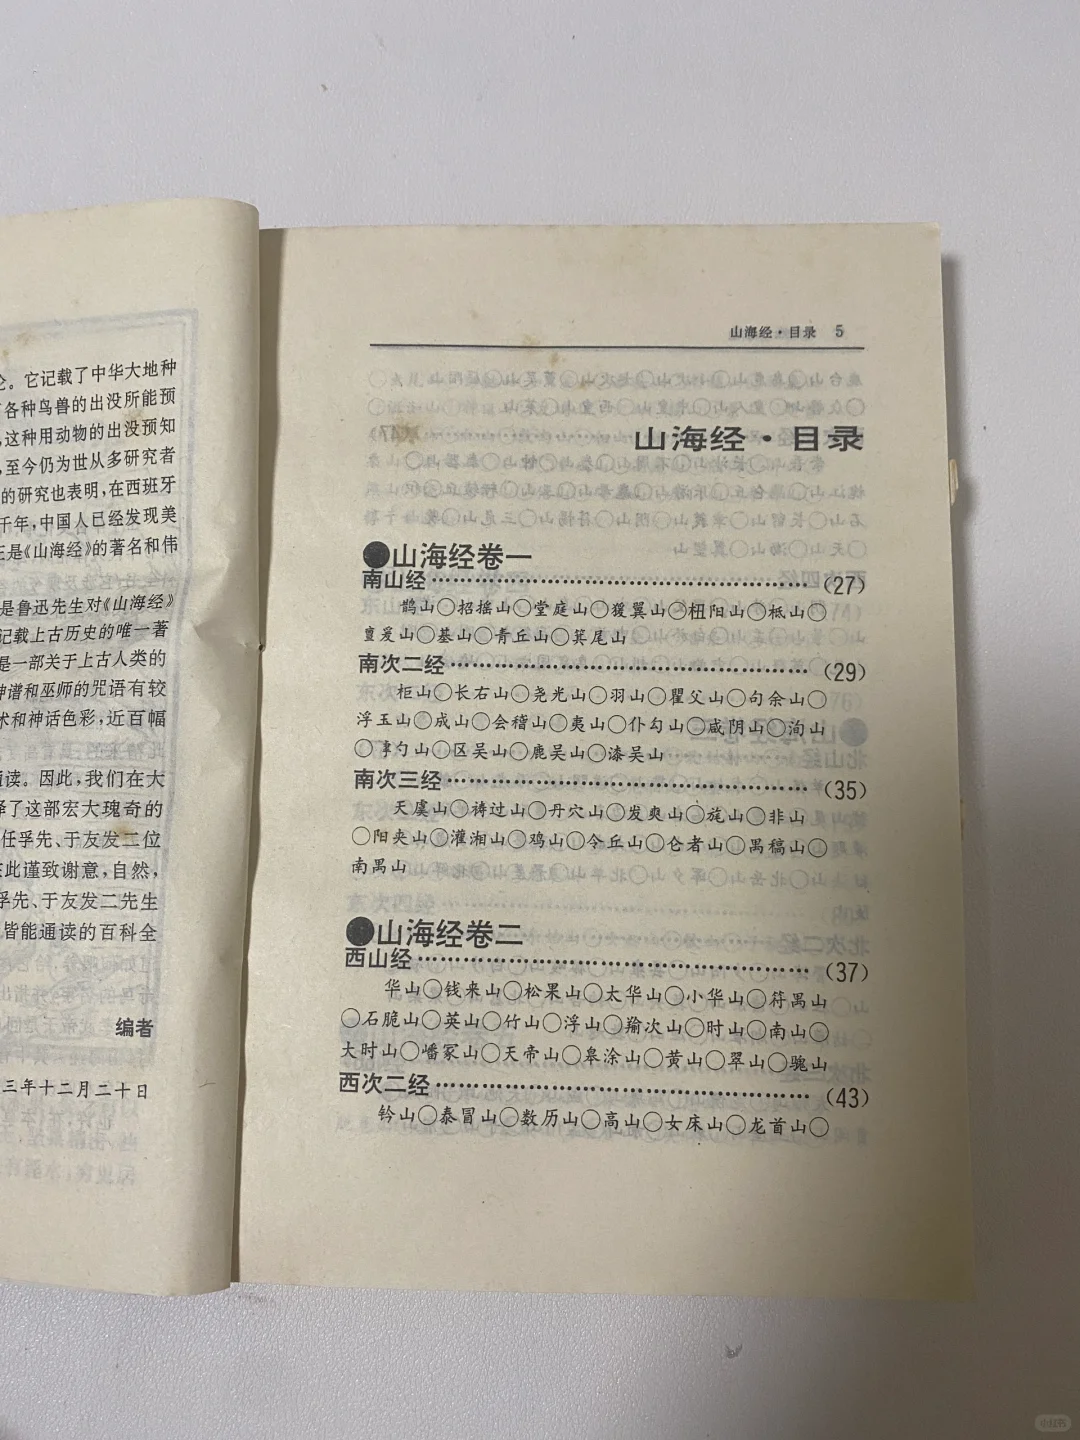 。它记载了中华大地种
各种鸟兽的出没所能预
这种用动物的出没预知
至今仍为世从多研究者
的研究也表明,在西班牙
千年,中国人已经发现美
是《山海经》的著名和伟
是鲁迅先生对《山海经》
记载上古历史的唯一著
是一部关于上古人类的
神谱和巫师的咒语有较
术和神话色彩,近百幅
通读。因此,我们在大
译了这部宏大瑰奇的
任孚先、于友发二位
在此谨致谢意,自然,
孚先、于友发二先生
皆能通读的百科全
编者
三年十二月二十日
山海经·目录 5
山海经·目录
●山海经卷一
南山经……(27)
鹊山○招摇山○堂庭山○猨翼山○杻阳山○柢山○
亶爰山○基山○青丘山○箕尾山
南次二经……(29)
柜山○长右山○尧光山○羽山○瞿父山○句余山○
浮玉山○成山○会稽山○夷山○仆勾山○咸阴山○洵山
○虖勺山○区吴山○鹿吴山○漆吴山
南次三经……(35)
天虞山○祷过山○丹穴山○发爽山○旄山○非山
○阳夹山○灌湘山○鸡山○令丘山○仑者山○禺稿山○
南禺山
●山海经卷二
西山经……(37)
华山○钱来山○松果山○太华山○小华山○符禺山
○石脆山○英山○竹山○浮山○羭次山○时山○南山○
大时山○嶓冢山○天帝山○皋涂山○黄山○翠山○騩山
西次二经……(43)
钤山○泰冒山○数历山○高山○女床山○龙首山○
小红书